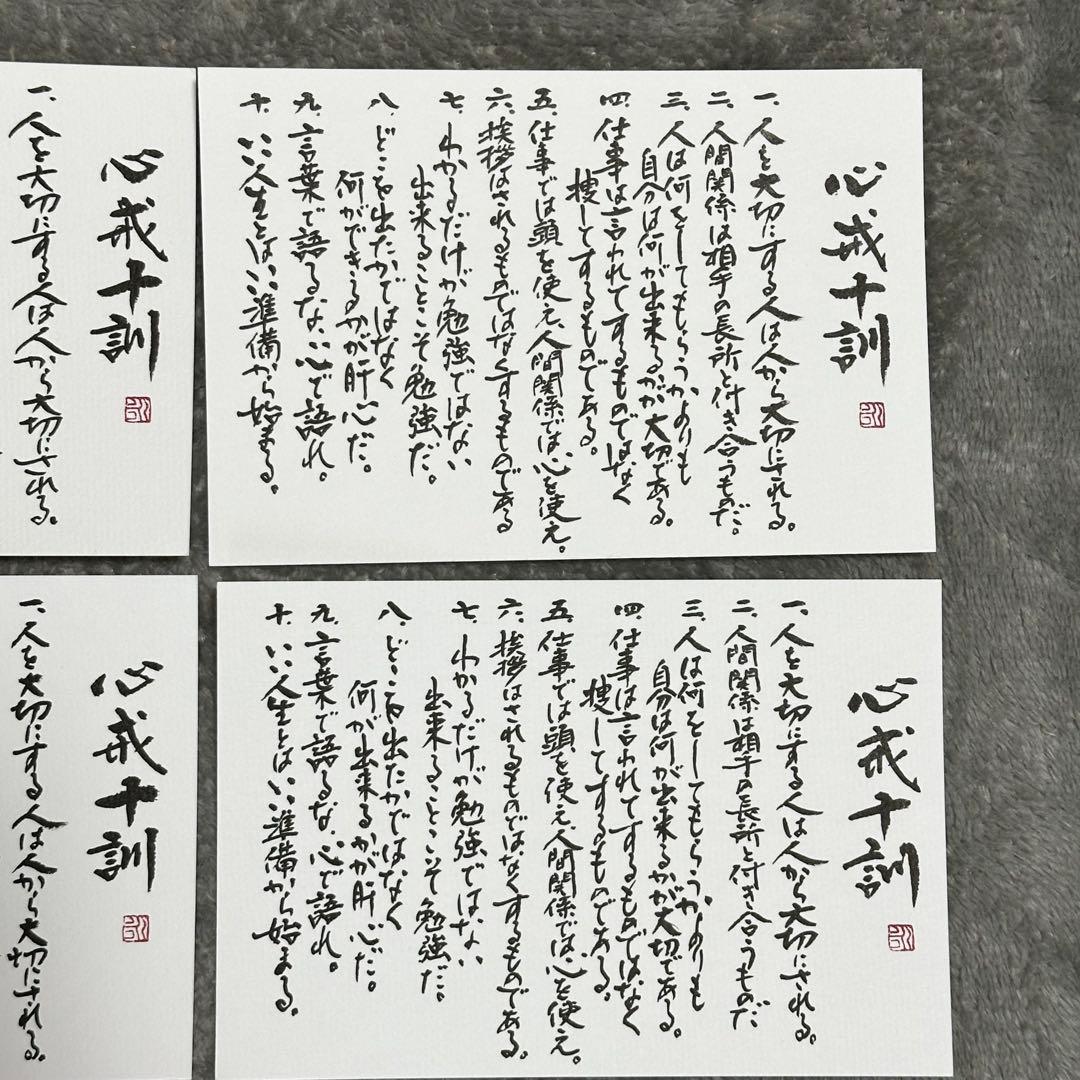 心戒十訓
一、人を大切にする人は人から大切にされる。
二、人間関係は相手の長所と付き合うものだ。
三、人は何をしてもらうかよりも
自分は何が出来るかが大切である。
四、仕事は言われてするものではなく
捜してするものである。
五、仕事では頭を使え、人間関係では心を使え。
六、挨拶はされるものではなくするものである
七、わかるだけが勉強ではない
出来ることこそ勉強だ。
八、どこを出たかではなく
何ができるかが肝心だ。
九、言葉で語るな、心で語れ。
十、いい人生とはいい準備から始まる。
心戒十訓
一、人を大切にする人は人から大切にされる。
心戒十訓
一、人を大切にする人は人から大切にされる。
二、人間関係は相手の長所と付き合うものだ
三、人は何をしてもらうかよりも
自分は何が出来るかが大切である。
四、仕事は言われてするものではなく
捜してするものである。
五、仕事では頭を使え、人間関係では心を使え。
六、挨拶はされるものではなくするものである。
七、わかるだけが勉強ではない
出来ることこそ勉強だ。
八、どこを出たかではなく
何が出来るかが肝心だ。
九、言葉で語るな、心で語れ。
十、いい人生とはいい準備から始まる。
心戒十訓
一、人を大切にする人は人から大切にされる。